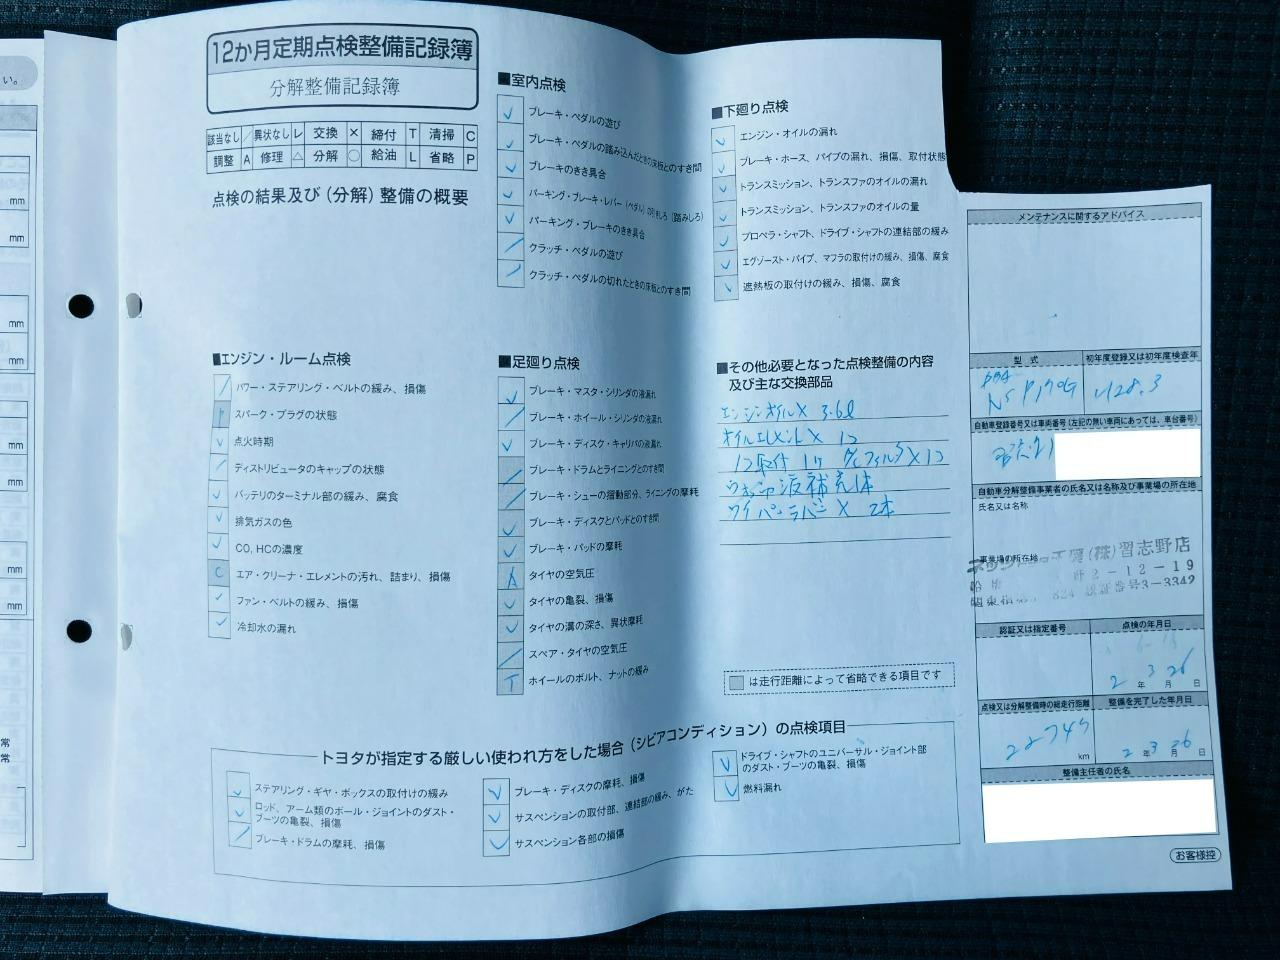 12か月定期点検整備記録簿
分解整備記録簿
該当なし / 異状なし レ 交換 × 締付 T 清掃 C
調整 A 修理 △ 分解 ○ 給油 L 省略 P
点検の結果及び(分解)整備の概要
■エンジン・ルーム点検
/ パワー・ステアリング・ベルトの緩み、損傷
スパーク・プラグの状態
レ 点火時期
/ ディストリビュータのキャップの状態
レ バッテリのターミナル部の緩み、腐食
レ 排気ガスの色
レ CO, HCの濃度
C エア・クリーナ・エレメントの汚れ、詰まり、損傷
レ ファン・ベルトの緩み、損傷
レ 冷却水の漏れ
■室内点検
レ ブレーキ・ペダルの遊び
レ ブレーキ・ペダルの踏み込んだときの床板とのすき間
レ ブレーキのきき具合
レ パーキング・ブレーキ・レバー(ペダル)の引きしろ(踏みしろ)
レ パーキング・ブレーキのきき具合
/ クラッチ・ペダルの遊び
/ クラッチ・ペダルの切れたときの床板とのすき間
■足廻り点検
レ ブレーキ・マスタ・シリンダの液漏れ
/ ブレーキ・ホイール・シリンダの液漏れ
レ ブレーキ・ディスク・キャリパの液漏れ
/ ブレーキ・ドラムとライニングとのすき間
/ ブレーキ・シューの摺動部分、ライニングの摩耗
レ ブレーキ・ディスクとパッドとのすき間
レ ブレーキ・パッドの摩耗
A タイヤの空気圧
レ タイヤの亀裂、損傷
レ タイヤの溝の深さ、異状摩耗
/ スペア・タイヤの空気圧
T ホイールのボルト、ナットの緩み
■下廻り点検
レ エンジン・オイルの漏れ
レ ブレーキ・ホース、パイプの漏れ、損傷、取付状態
レ トランスミッション、トランスファのオイルの漏れ
レ トランスミッション、トランスファのオイルの量
レ プロペラ・シャフト、ドライブ・シャフトの連結部の緩み
レ エグゾースト・パイプ、マフラの取付けの緩み、損傷、腐食
レ 遮熱板の取付けの緩み、損傷、腐食
■その他必要となった点検整備の内容
及び主な交換部品
エンジンオイル× 3.6ℓ
オイルエレメント× 1コ
フィルタ×1コ
ウォッシャ液補充
ワイパーラバー × 2本
は走行距離によって省略できる項目です
トヨタが指定する厳しい使われ方をした場合(シビアコンディション)の点検項目
レ ステアリング・ギヤ・ボックスの取付けの緩み
レ ロッド、アーム類のボール・ジョイントのダスト・
ブーツの亀裂、損傷
/ ブレーキ・ドラムの摩耗、損傷
レ ブレーキ・ディスクの摩耗、損傷
レ サスペンションの取付部、連結部の緩み、がた
レ サスペンション各部の損傷
レ ドライブ・シャフトのユニバーサル・ジョイント部
のダスト・ブーツの亀裂、損傷
レ 燃料漏れ
メンテナンスに関するアドバイス
型式 初年度登録又は初年度検査年
H28.3
自動車登録番号又は車両番号(左記の無い車両にあっては、車台番号)
自動車分解整備事業者の氏名又は名称及び事業場の所在地
氏名又は名称
事業場の所在地
(株)習志野店
2-12-19
認証番号3-3342
認証又は指定番号 点検の年月日
2年3月26日
点検又は分解整備時の総走行距離 整備を完了した年月日
22745 km 2年3月26日
整備主任者の氏名
お客様控
い。
mm
mm
mm
mm
mm
mm
mm
mm
常
常